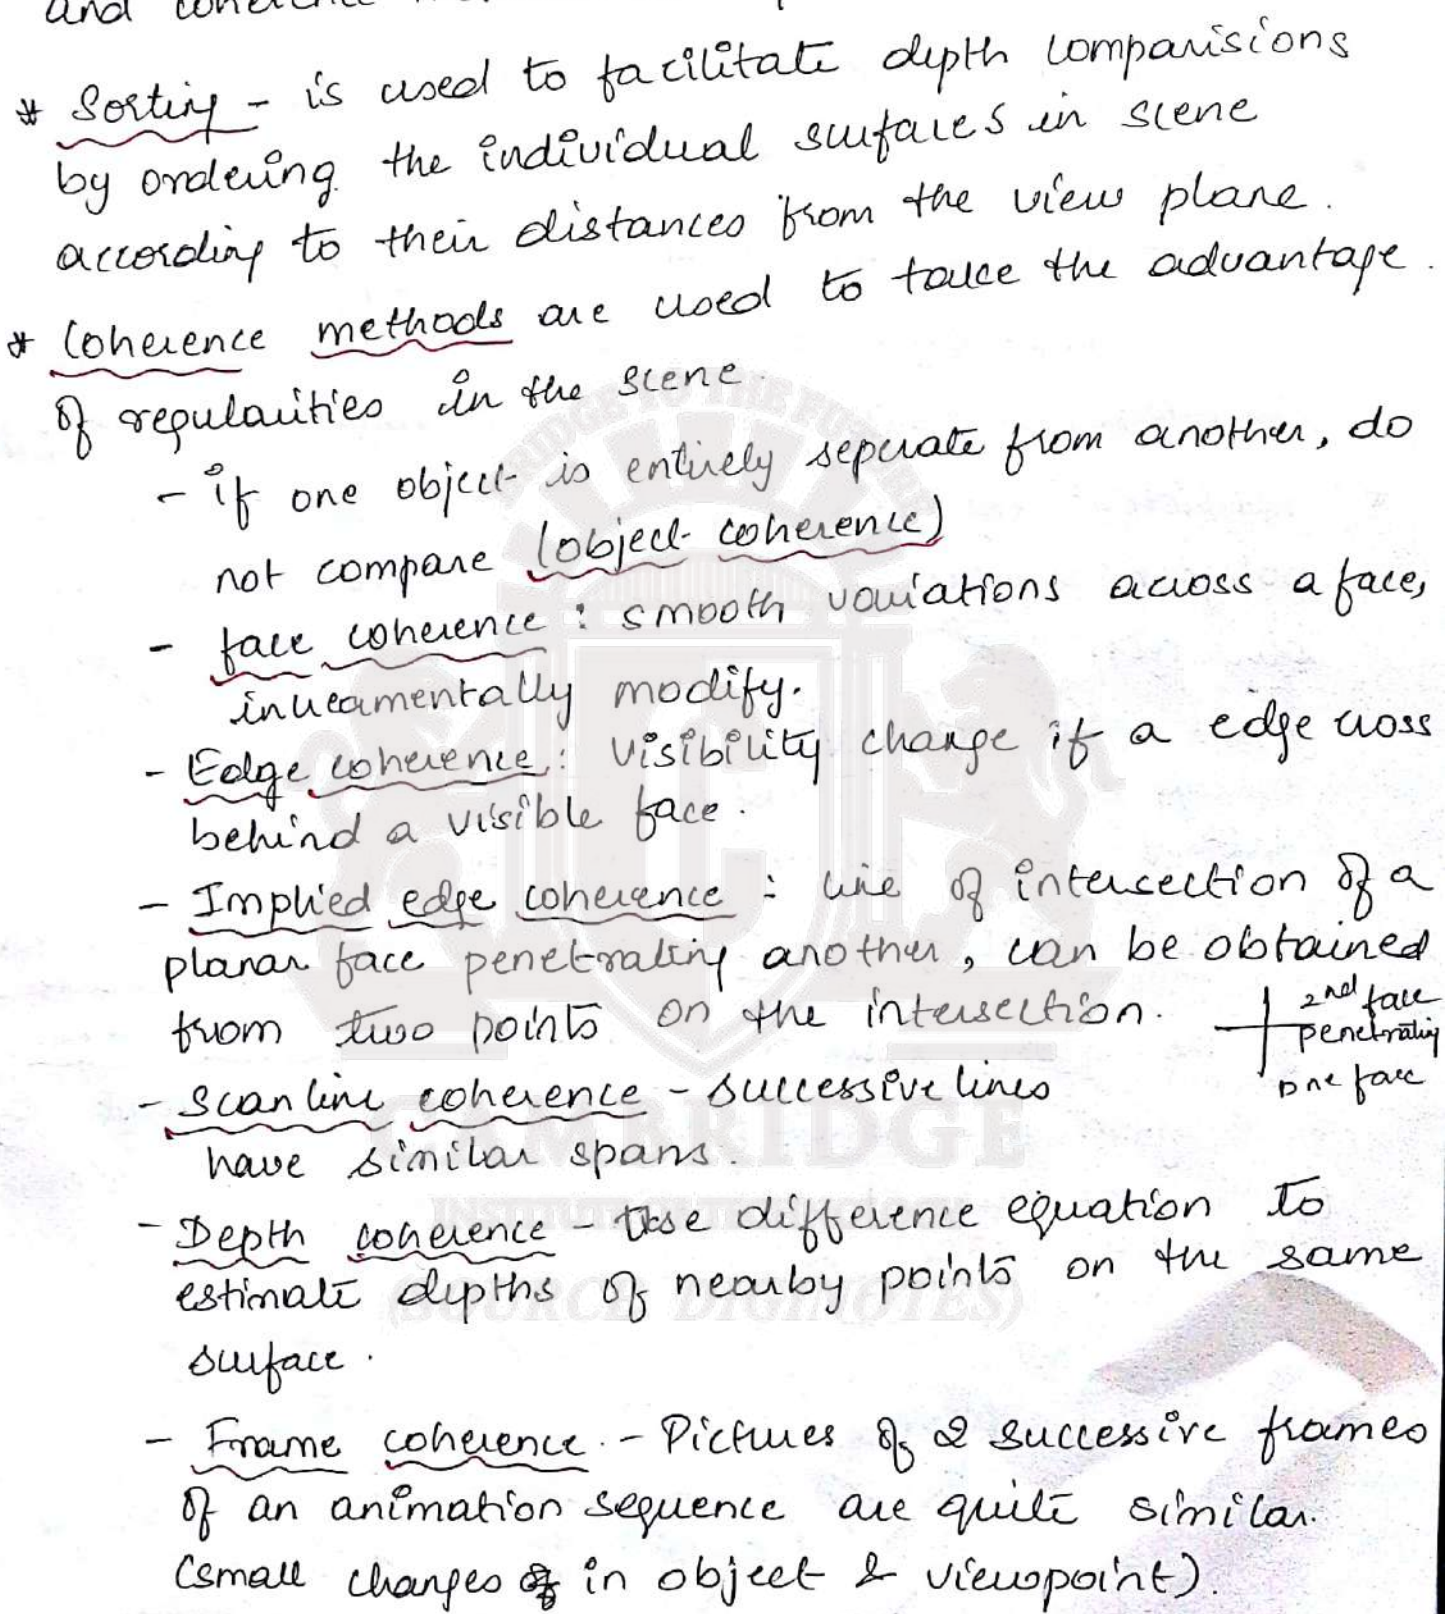 and coherence
* Sorting - is used to facilitate depth comparisions
by ordering the individual surfaces in scene
according to their distances from the view plane.
* Coherence methods are used to take the advantage.
of regularities in the scene.
- if one object is entirely seperate from another, do
not compare (object coherence)
- face coherence : smooth variations across a face,
increamentally modify.
- Edge coherence : Visibility change if a edge cross
behind a visible face.
- Implied edge coherence : line of intersection of a
planar face penetrating another, can be obtained
from two points on the intersection.
2nd face
penetrating
one face
- Scan line coherence - successive lines
have similar spans.
- Depth coherence - Use difference equation to
estimate depths of nearby points on the same
surface.
- Frame coherence. - Pictures of 2 successive frames
of an animation sequence are quite similar.
(small changes in object & viewpoint).
BRIDGE TO THE FUTURE
CAMBRIDGE
INSTITUTE OF TECHNOLOGY
(SOURCE DIGINOTES)